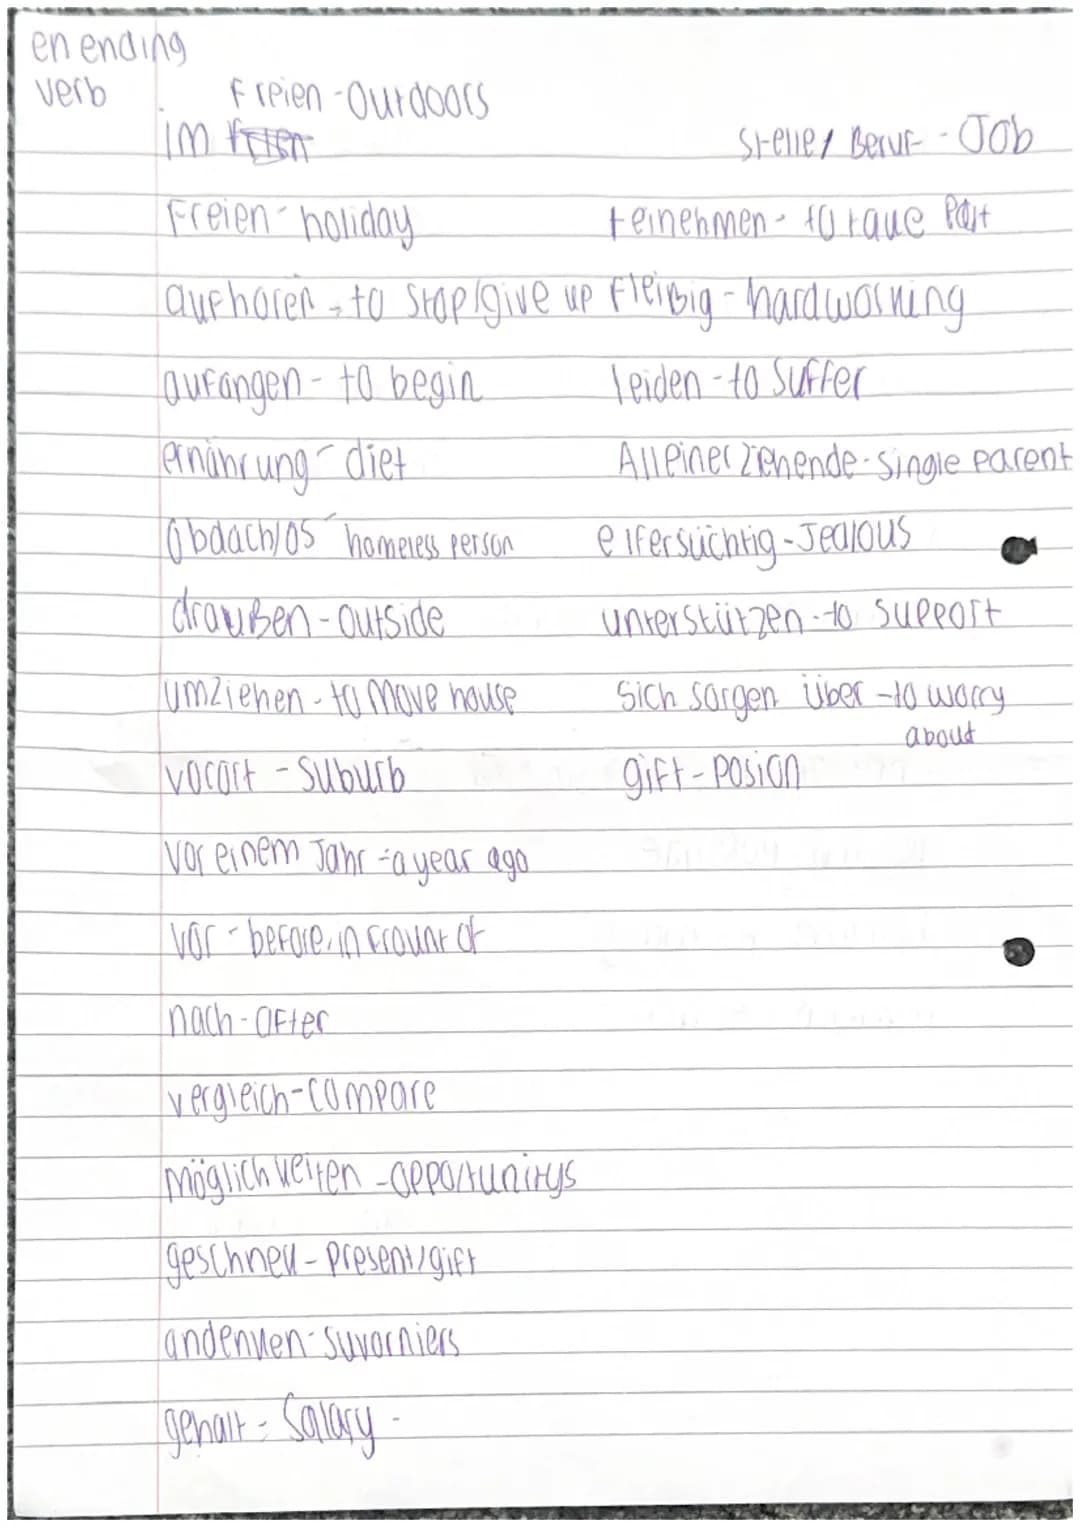 en ending
verb
Freien - Outdoors
im
Stelle / Beruf - Job
Freien - holiday
teinehmen - to take Part
aufhoren - to stop/give up
fleißig - hardworking
aufangen - to begin
leiden - to Suffer
ernährung - diet
Alleinerziehende - single parent
Obdachlos - homeless person
eifersüchtig - Jealous
draußen - outside
unterstützen - to support
umziehen - to move house
Sich sorgen über - to worry
about
vorort - Suburb
gift - posion
vor einem Jahr - a year ago
vor - before, in frount of
nach - after
vergleich - compare
möglichkeiten - opportunitys
geschnek - present/gift
andenken - suvorniers
gehalt - Salary -